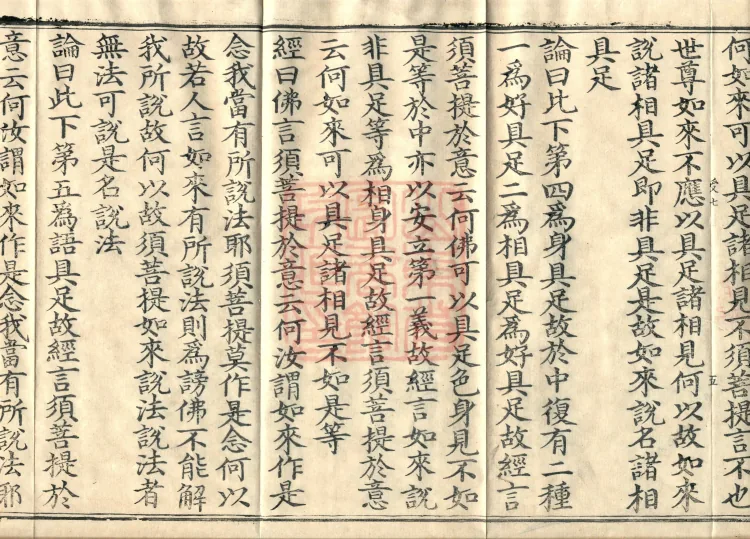 何如來可以具足諸相見不須菩提言不也
世尊如來不應以具足諸相見何以故如來
說諸相具足即非具足是故如來說名諸相
具足
論曰此下第四爲身具足故於中復有二種
一爲好具足二爲相具足爲好具足故經言
須菩提於意云何佛可以具足色身見不如
是等於中亦以安立第一義故經言如來說
非具足等爲相身具足故經言須菩提於意
云何如來可以具足諸相見不如是等
經曰佛言須菩提於意云何汝謂如來作是
念我當有所說法耶須菩提莫作是念何以
故若人言如來有所說法則爲謗佛不能解
我所說故何以故須菩提如來說法說法者
無法可說是名說法
論曰此下第五爲語具足故經言須菩提於
意云何汝謂如來作是念我當有所說法耶
五